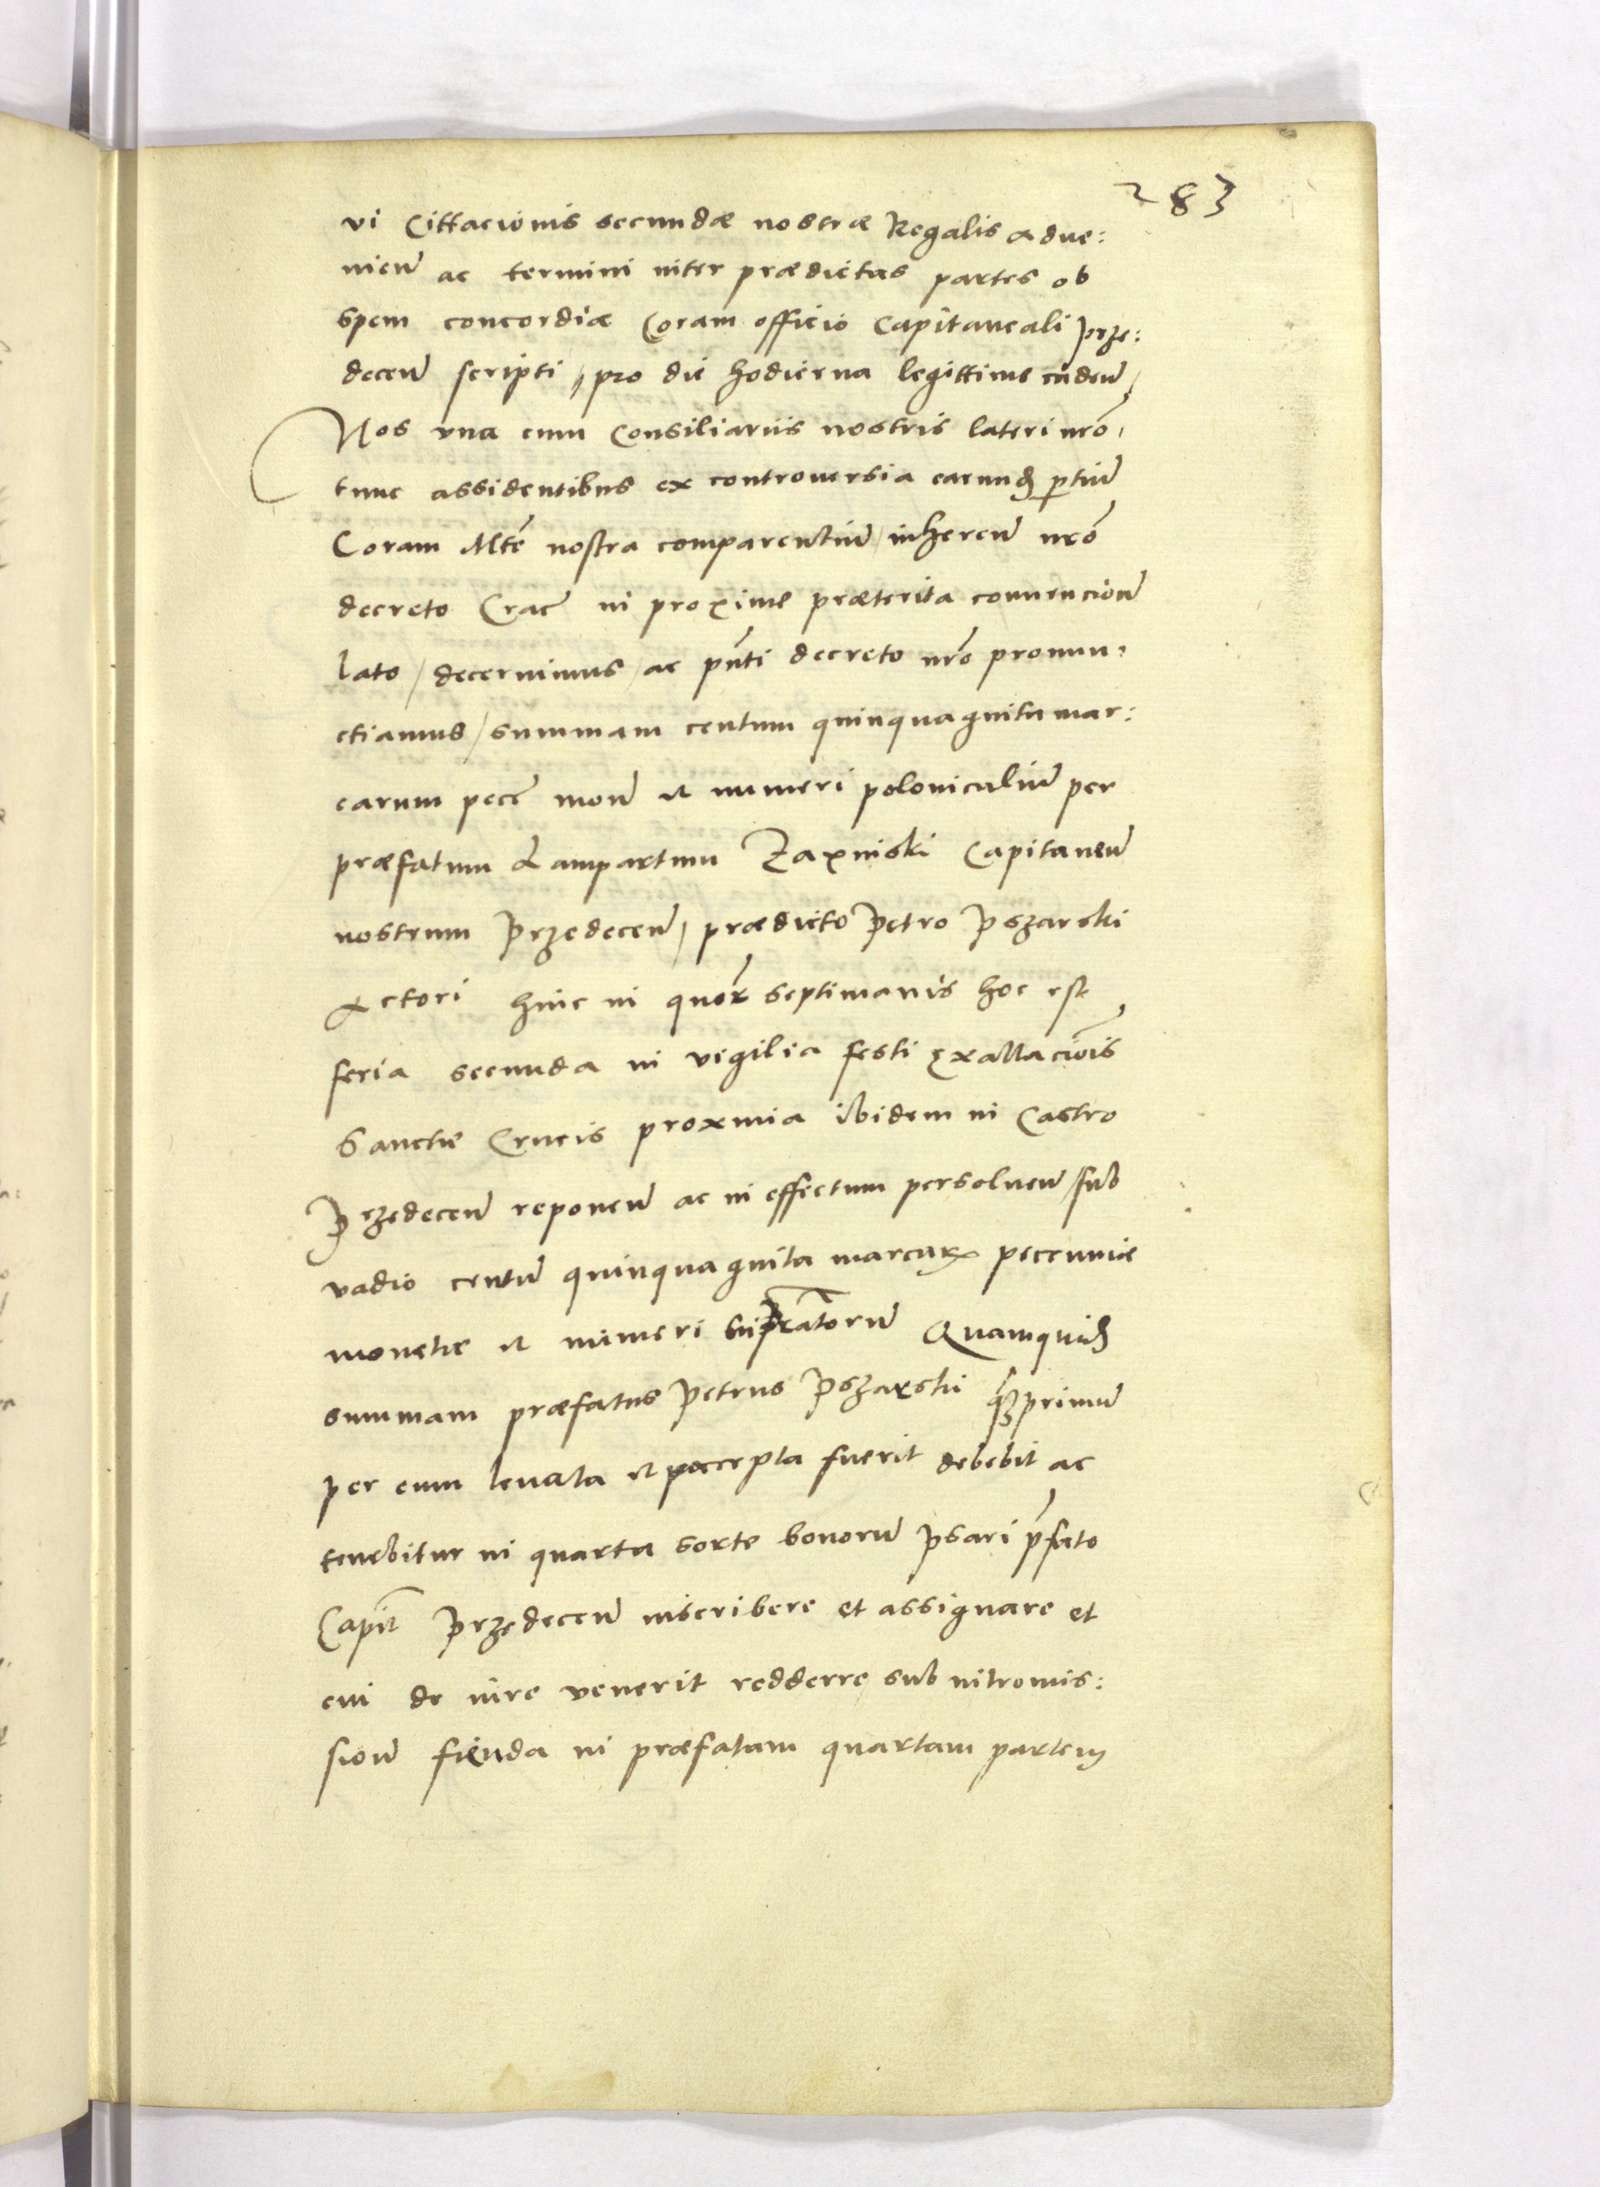 283
vi Cittacionis secundæ nostræ Regalis adue:
nieñ ac termini inter prædictas partes ob
spem concordiæ Coram officio Capitaneali Prze:
deceñ scripti, pro die hodierna legittime cadeñ/
Nos vna cum Consiliariis nostris lateri nrō
tunc assidentibus ex controuersia earund partiū
Coram Mte nostra comparentiū/ inhereñ nrō
decreto Crac in proxime præterita conuencioñ
lato/ decernimus/ ac pnti decreto nrō pronun,
ctiamus/ summam centum quinquaginta mar:
carum pecē moñ et numeri polonicaliū per
præfatum Lampartum Zaxinski Capitaneū
nostrum Przedeceñ/ prædicto Petro Pszarski
Actori hinc in quor septimanis hoc est
feria secunda in vigilia festi Exaltaciōis
Sanctæ Crucis proxima ibidem in Castro
Przedeceñ reponeñ ac in effectum persolueñ/ sub
vadio centū quinquaginta marcar pecuniæ
monetæ et numeri supratorū Quamquid
summam præfatus Petrus Pszarski primū
per eum leuata et percepta fuerit debebit ac
tenebitur in quarta sorte bonorū Psari pfato
Capit Przedeceñ inscribere et assignare et
cui de iure venerit redderre sub intromis:
sioñ fienda in præfatam quartam partem